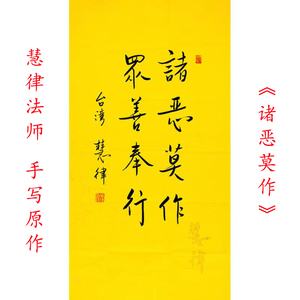 《诸恶莫作》
諸恶莫作
眾善奉行
台湾 慧律
慧律
慧律法师 手写原作